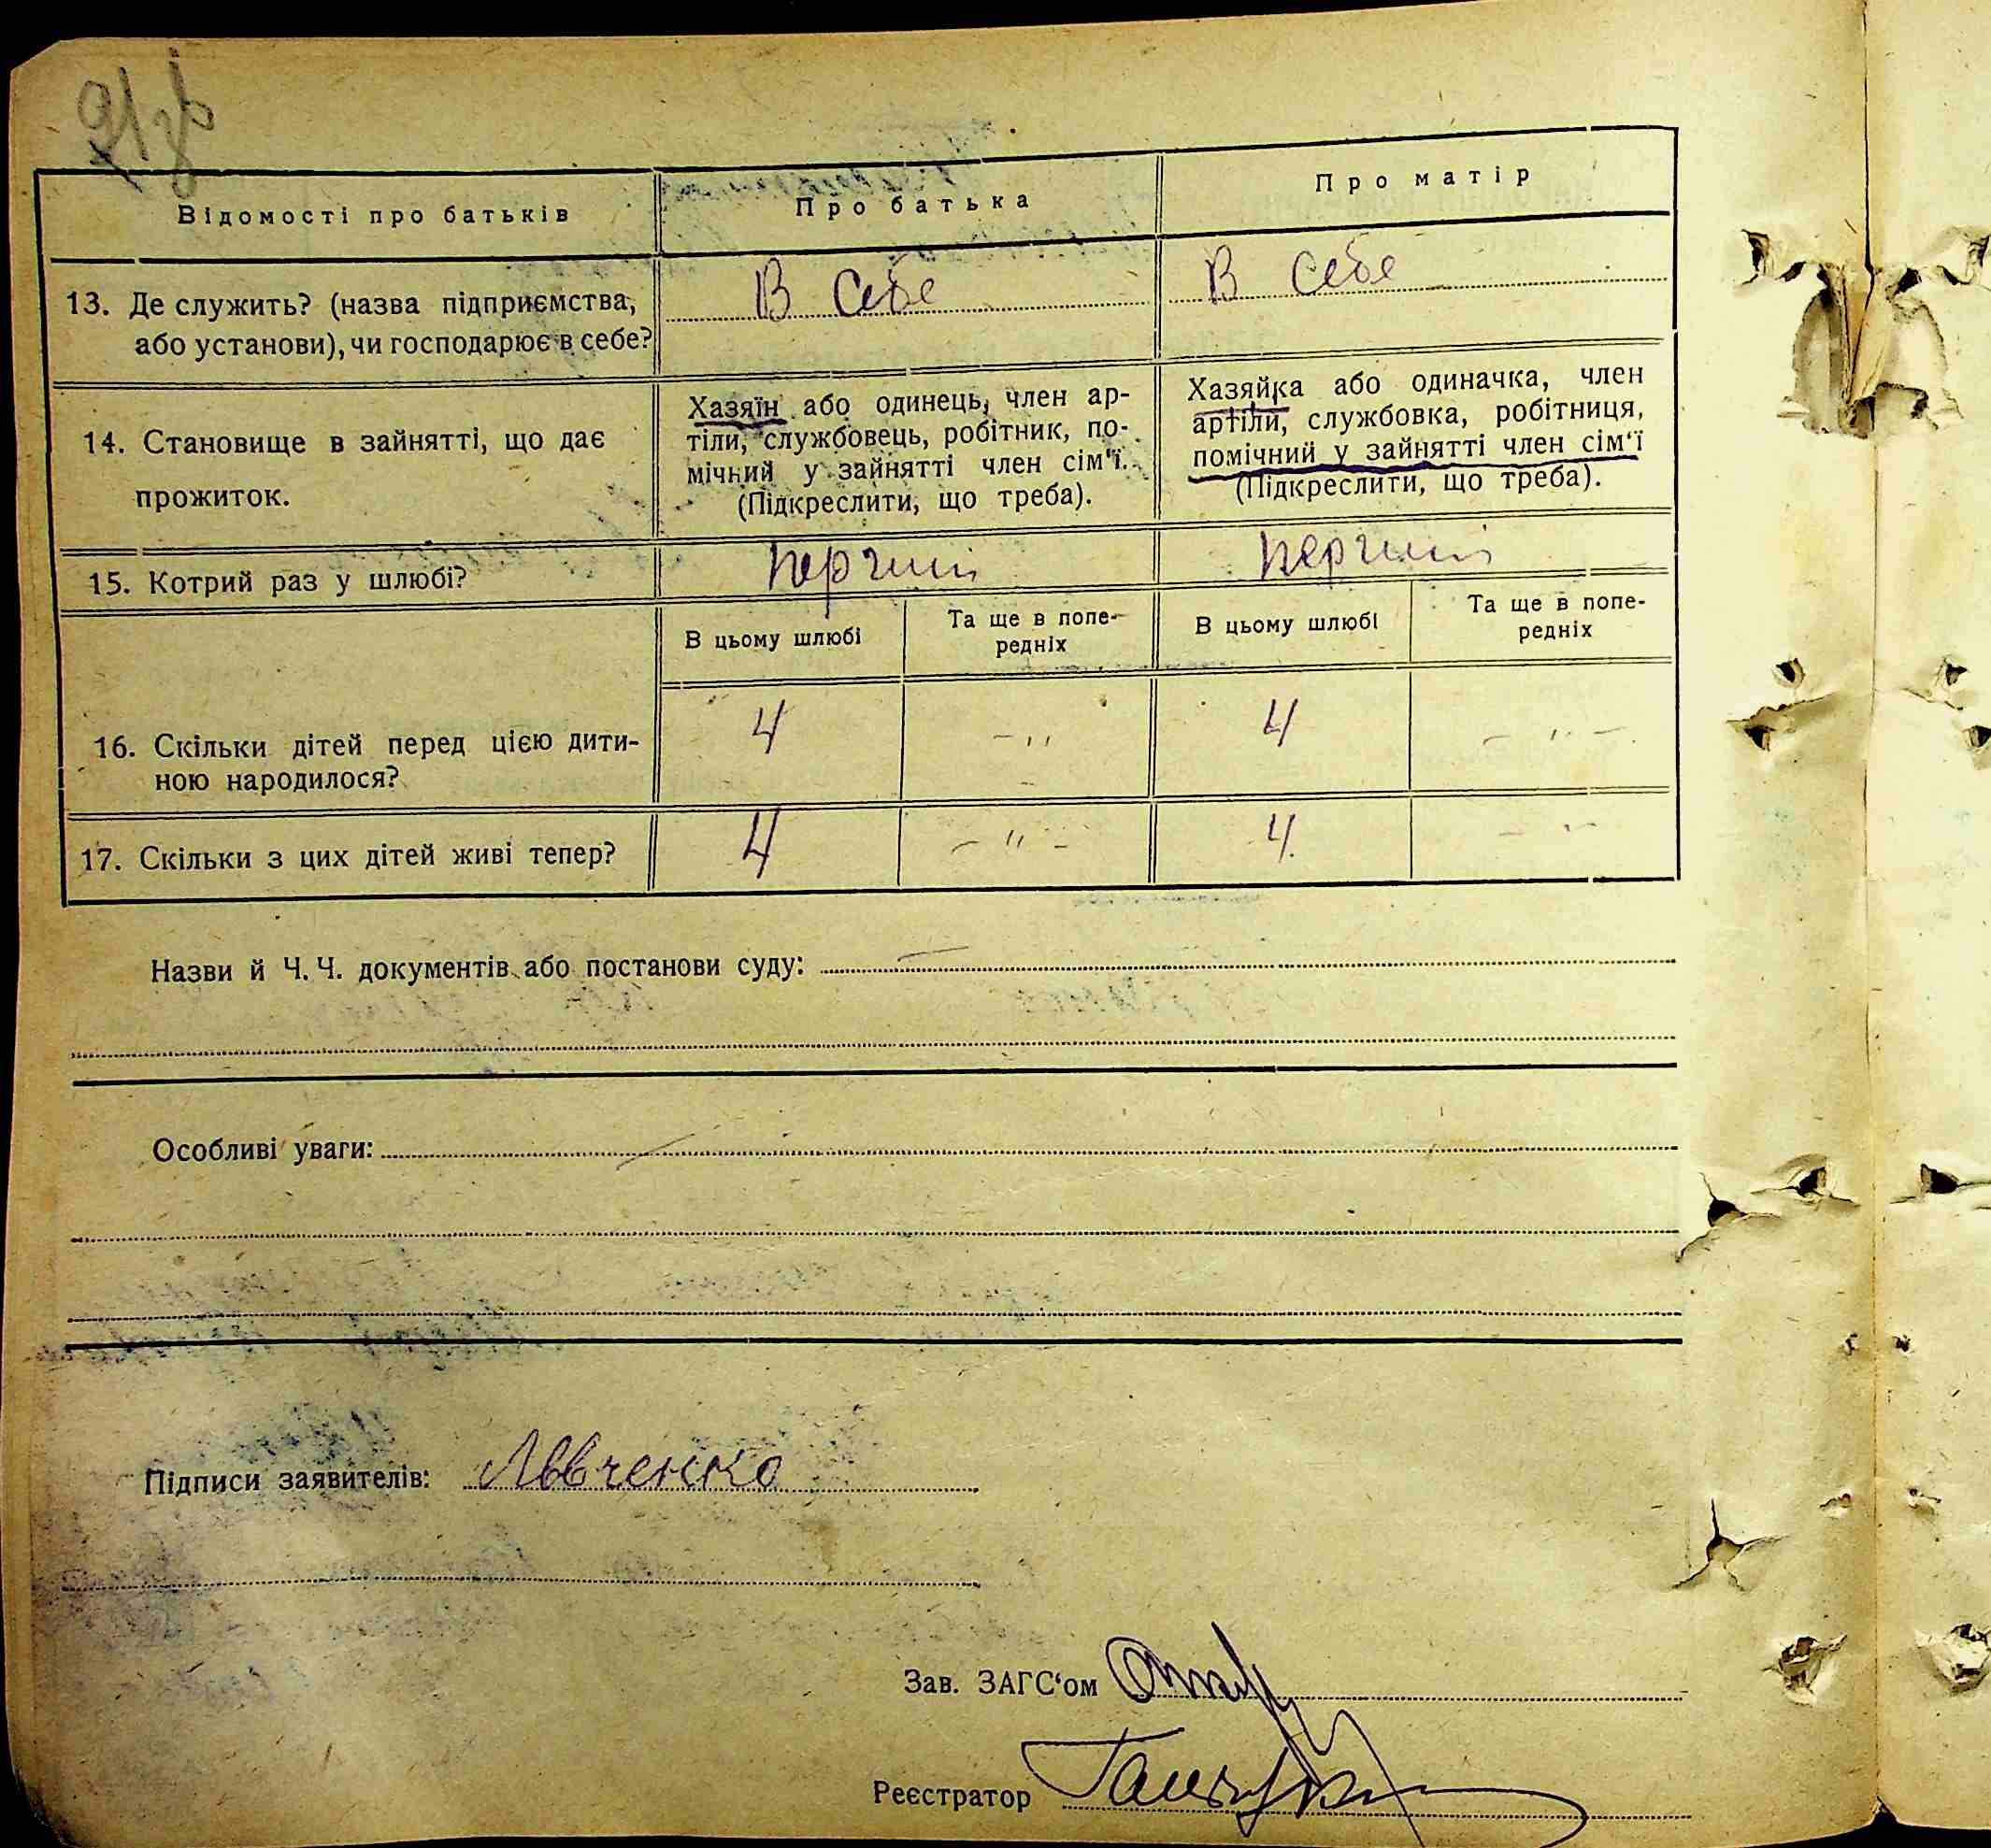 Відомості про батьків
Про батька
Про матір
13. Де служить? (назва підприємства,
або установи), чи господарює в себе?
В себе
В себе
14. Становище в зайнятті, що дає
прожиток.
Хазяїн або одинець, член ар-
тіли, службовець, робітник, по-
мічний у зайнятті член сім'ї.
(Підкреслити, що треба).
Хазяйка або одиначка, член
артіли, службовка, робітниця,
помічний у зайнятті член сім'ї
(Підкреслити, що треба).
15. Котрий раз у шлюбі?
перчий
перчий
В цьому шлюбі
Та ще в попе-
редніх
В цьому шлюбі
Та ще в попе-
редніх
16. Скільки дітей перед цією дити-
ною народилося?
4
- "
4
- " -
17. Скільки з цих дітей живі тепер?
4
- " -
4.
- " -
Назви й Ч. Ч. документів або постанови суду: —
Особливі уваги:
Підписи заявителів: Лввченко
Зав. ЗАГС'ом
Реєстратор